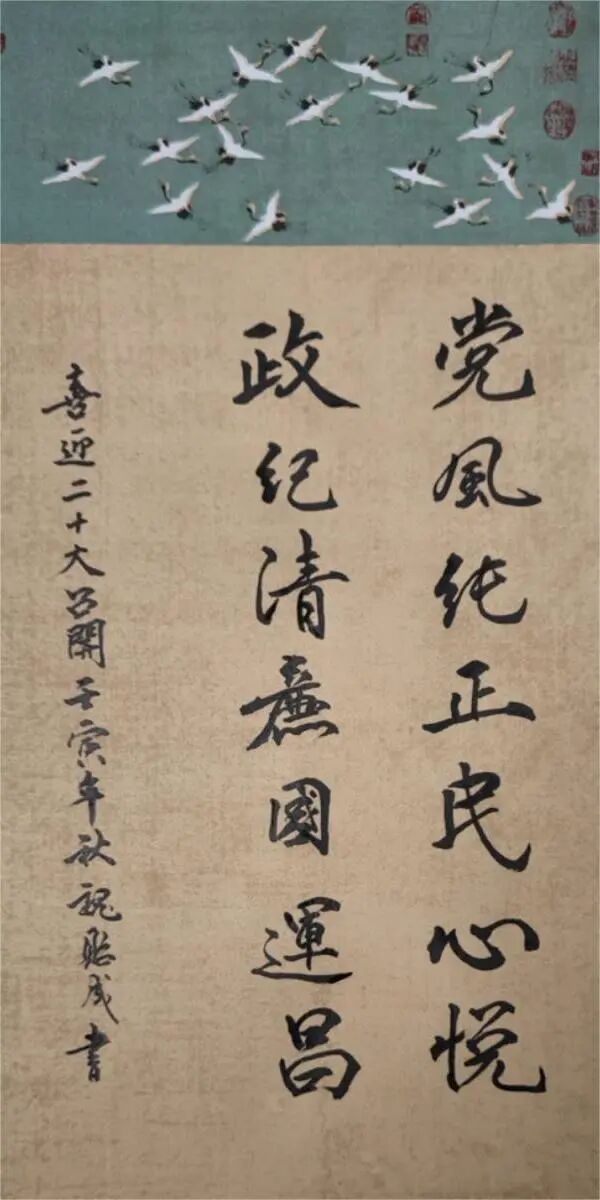 党風纯正民心悦
政纪清廉國運昌
喜迎二十大召開壬寅年秋魏殿成書